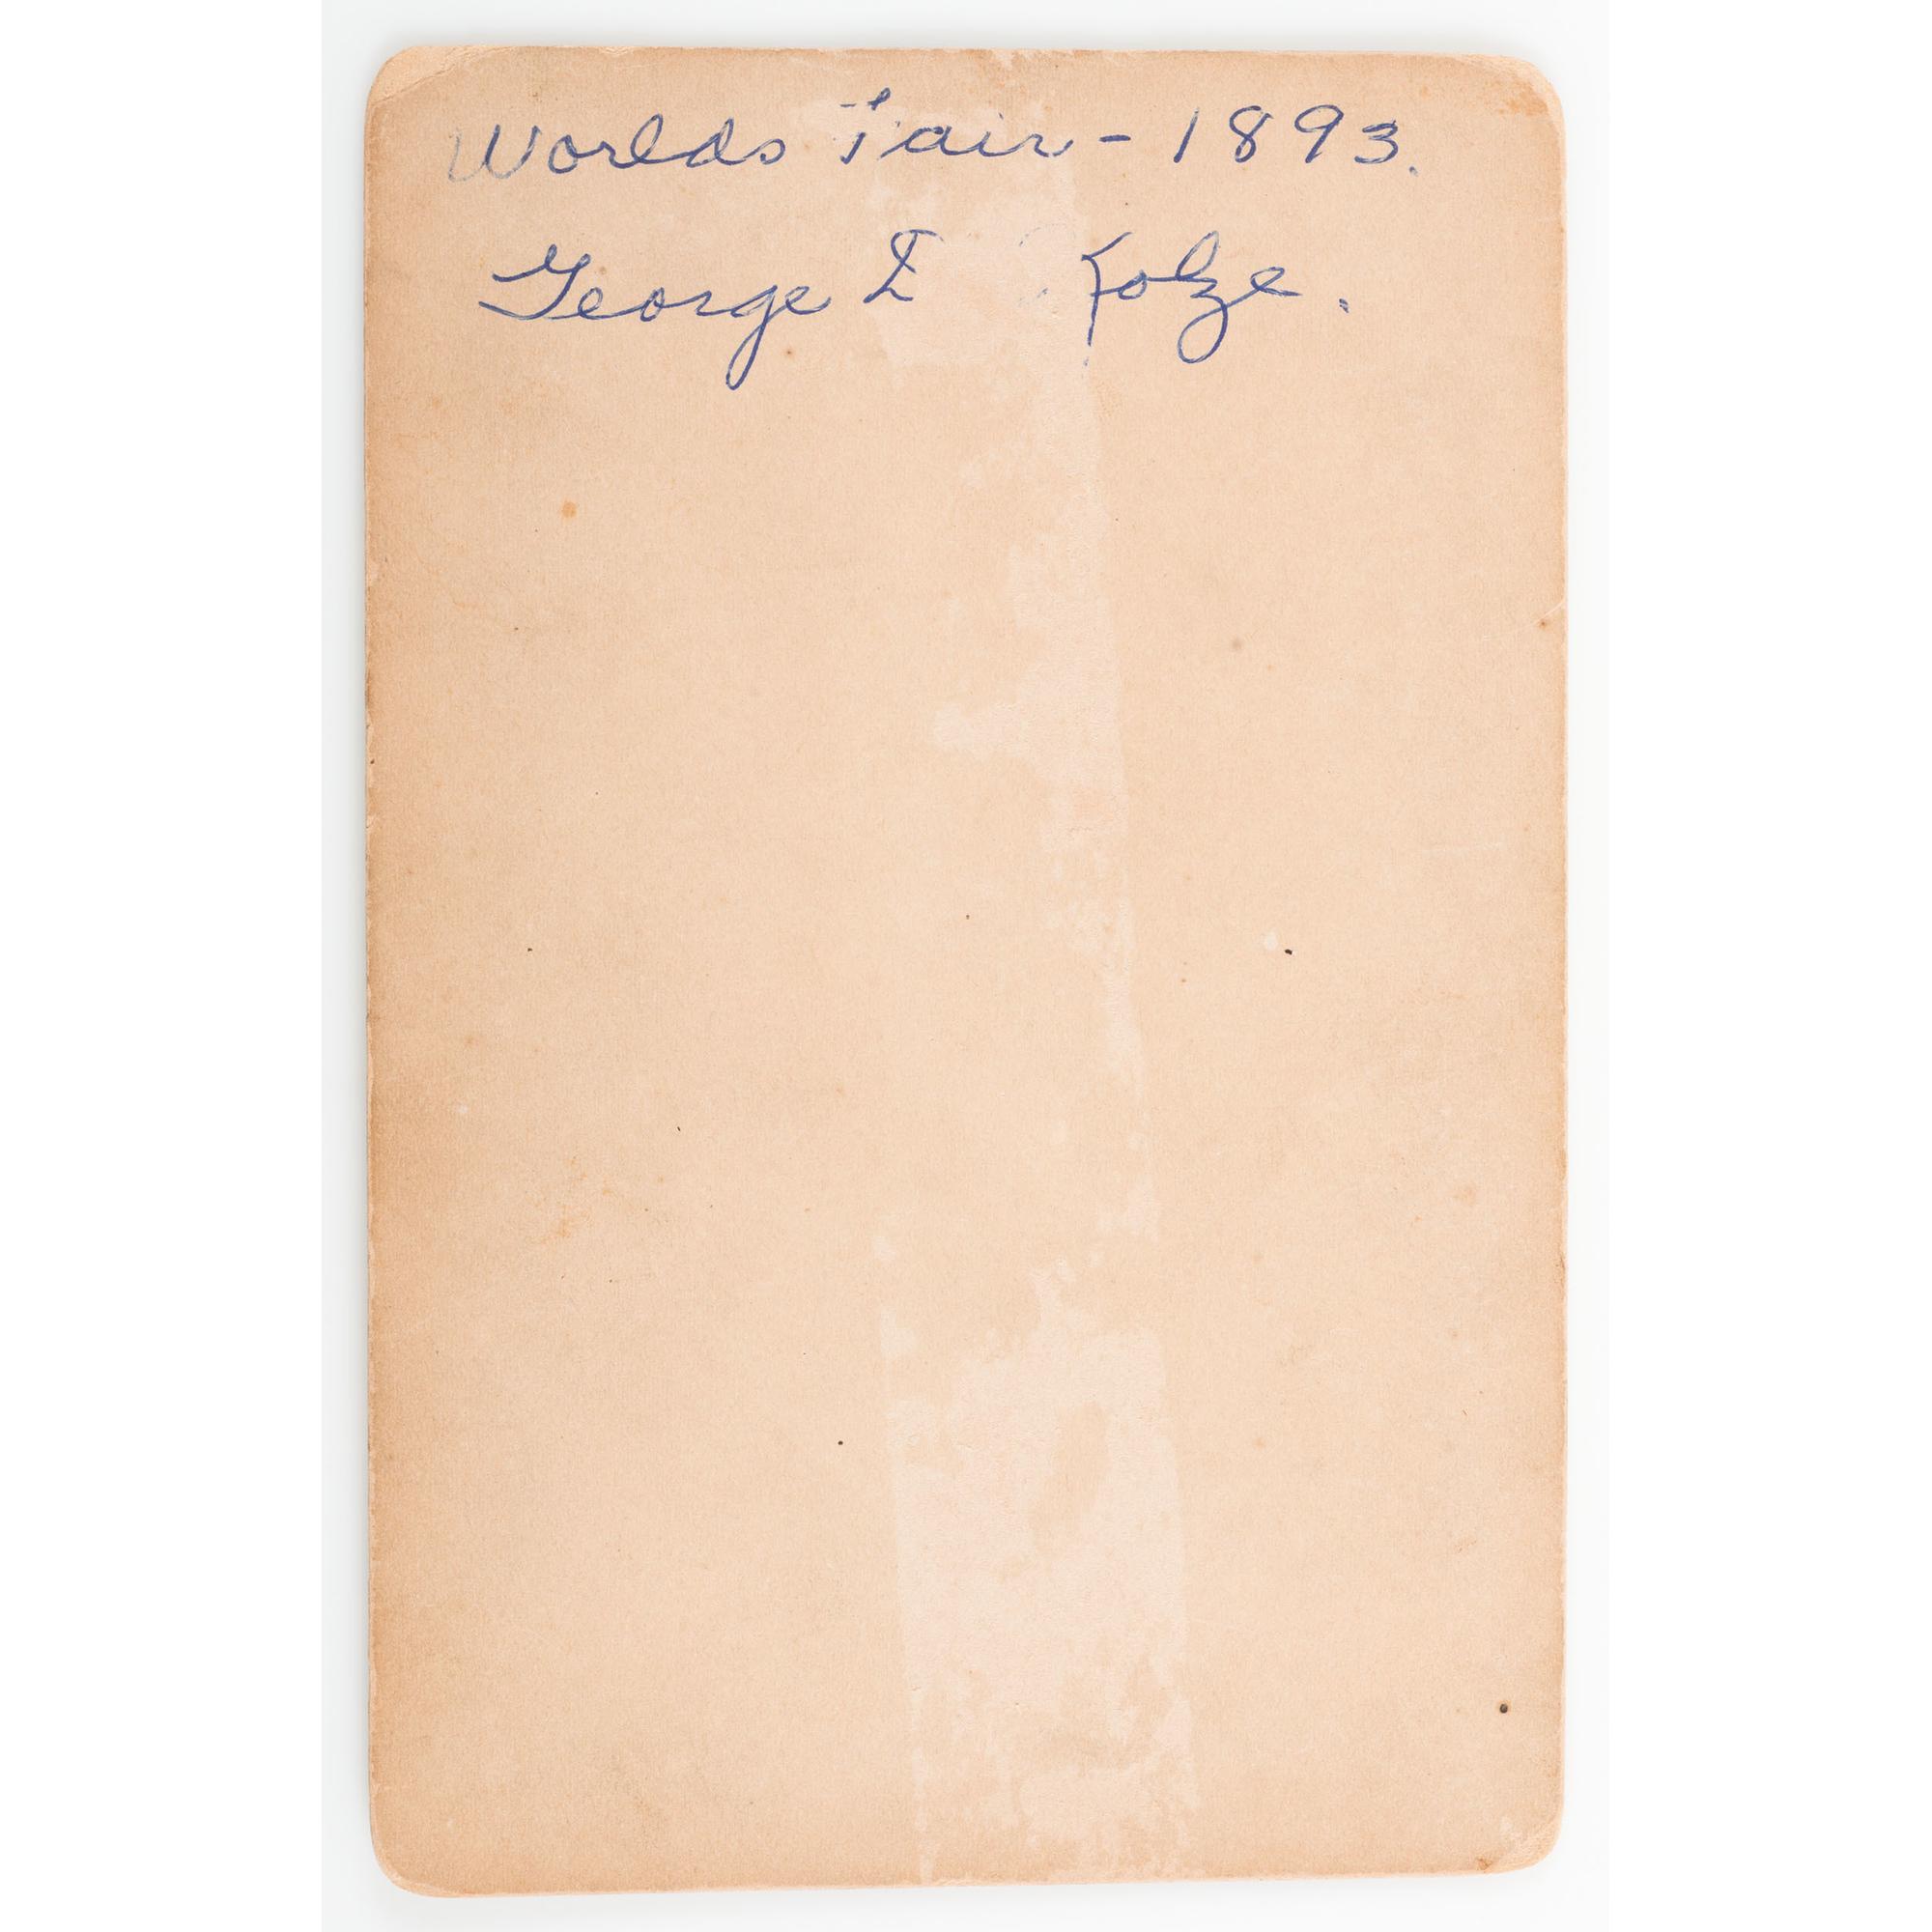 Worlds Fair - 1893.
George Kolze.